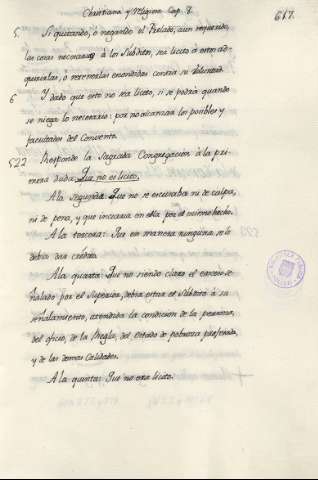 Christiana y Religiosa Cap. 7.
617.
5 Si quitando, o negando el Prelado, aun requerido,
las cosas necesarias à los Subditos, sea licito à estos ad-
quirirlas, ò retenerlas escondidas contra su voluntad.
6 Y dado que esto no sea licito, si se podrà quando
se niega lo necesario: por no alcanzar los posibles y
facultades del Convento.
522 Responde la Sagrada Congregacion à la pri-
mera duda: Que no es licito.
A la segunda: Que no se escusaba ni de culpa,
ni de pena, y que incurria en ella por el mismo hecho.
A la tercera: Que en manera ninguna se le
debia dar credito.
A la quarta: Que no siendo claro el exceso se-
ñalado por el Superior, debia estar el Subdito à su
señalamiento, atendida la condicion de la persona,
del oficio, de la Regla, del estado de pobreza professada,
y de las demas Calidades.
A la quinta: Que no era licito.